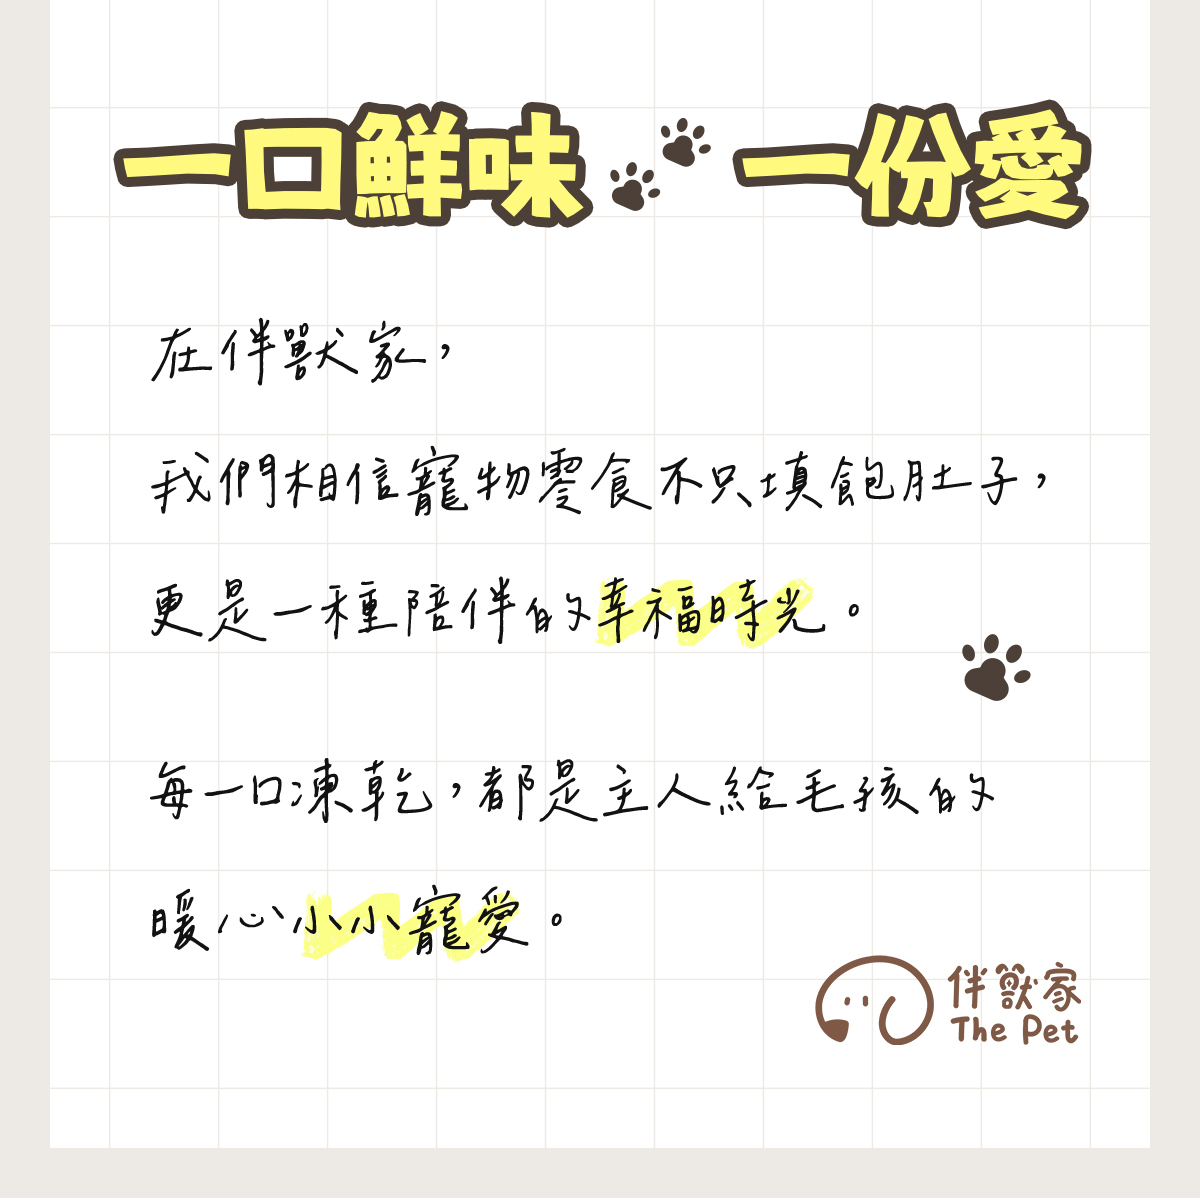 一口鮮味 一份愛
在伴獸家，
我們相信寵物零食不只填飽肚子，
更是一種陪伴的幸福時光。
每一口凍乾，都是主人給毛孩的
暖心小小寵愛。
伴獸家
The Pet